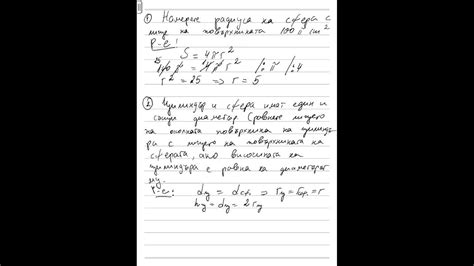 ① Намерете радиуса на сфера с
лице на повърхнината 100π cm²
Р-е:
S = 4πr²
100π = 4πr² /:π /:4
r² = 25 ⇒ r = 5
② Цилиндър и сфера имат един и
същи диаметър. Сравнете лицето
на околната повърхнина на цилиндъ
ра с лицето на повърхнината на
сферата, ако височината на
цилиндъра е равна на диаметъра
му.
Р-е: dц = dсф. ⇒ rц = rсф. = r
hц = dц = 2rц